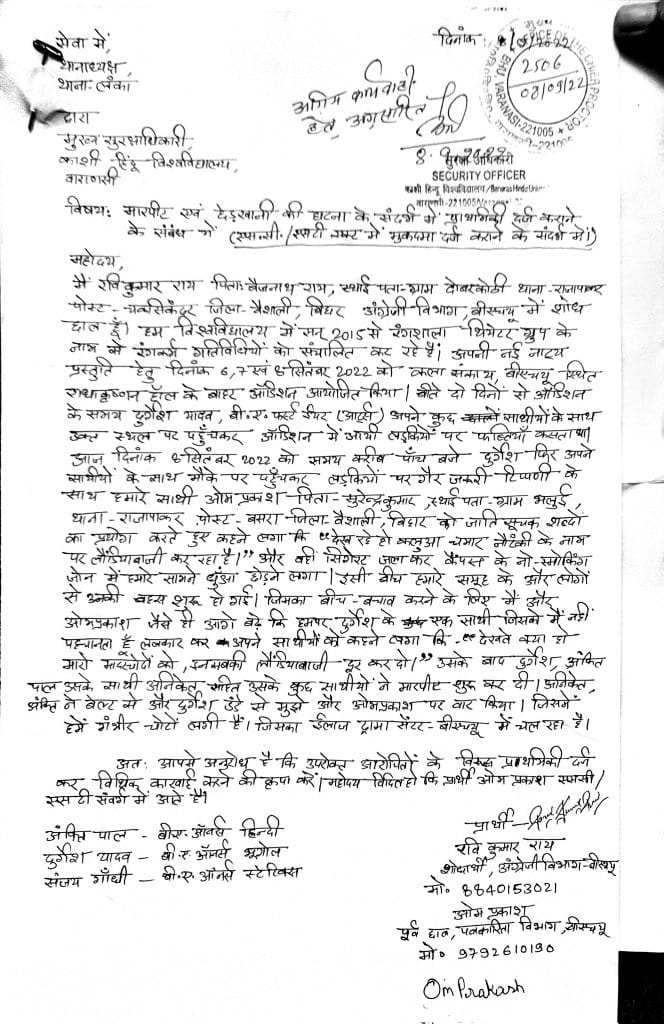 सेवा में,
थानाध्यक्ष,
थाना-लंका
दिनांक: 8/09/2022
OFFICE OF THE CHIEF PROCTOR
2506
08/09/22
BHU VARANASI-221005
द्वारा
मुख्य सुरक्षाधिकारी,
काशी हिंदू विश्वविद्यालय,
वाराणसी
अग्रिम कार्यवाही
हेतु अग्रसारित
सुरक्षा अधिकारी
SECURITY OFFICER
काशी हिन्दू विश्वविद्यालय/Banaras Hindu Univer
वाराणसी-221005/Varanasi
विषय: मारपीट एवं छेड़खानी की घटना के संदर्भ में प्राथमिकी दर्ज कराने
के संबंध में (एससी./एसटी एक्ट में मुकदमा दर्ज कराने के संदर्भ में।)
महोदय,
मैं रविकुमार राय पिता-बैजनाथ राय, स्थाई पता-ग्राम दोबरकोठी थाना-राजापाकर
पोस्ट- जिला-वैशाली, बिहार अंग्रेजी विभाग, बीएचयू में शोध
छात्र हूँ। हम विश्वविद्यालय में सन् 2015 से रंगशाला थियेटर ग्रुप के
नाम से रंगकर्म गतिविधियों को संचालित कर रहे हैं। अपनी नई नाट्य
प्रस्तुति हेतु दिनांक 6,7 एवं 8 सितंबर 2022 को कला संकाय, बीएचयू स्थित
राधाकृष्णन हॉल के बाहर ऑडिशन आयोजित किया। बीते दो दिनों से ऑडिशन
के समय दुर्गेश यादव, बी.ए. फर्स्ट ईयर (आर्ट्स) अपने कुछ साथीयों के साथ
उक्त स्थल पर पहुँचकर ऑडिशन में आयी लड़कियों पर फब्तियाँ कसता था।
आज दिनांक 8 सितंबर 2022 को समय करीब पाँच बजे दुर्गेश फिर अपने
साथीयों के साथ मौके पर पहुँचकर लड़कियों पर गैर जरूरी टिप्पणी के
साथ हमारे साथी ओम प्रकाश पिता-सुरेन्द्र कुमार, स्थाई पता-ग्राम भलुई,
थाना-राजापाकर, पोस्ट-बसरा जिला-वैशाली, बिहार को जाति सूचक शब्दों
का प्रयोग करते हुए कहने लगा कि "देख रहे हो कलुआ चमार नौटंकी के नाम
पर लौंडियाबाजी कर रहा है।" और वहीं सिगरेट जला कर कैंपस के नो-स्मोकिंग
जोन में हमारे सामने धुँआ छोड़ने लगा। इसी बीच हमारे समूह के और लोगों
से उनकी बहस शुरू हो गई। जिसका बीच-बचाव करने के लिए मैं और
ओमप्रकाश जैसे ही आगे बढ़े कि हमपर दुर्गेश के एक साथी जिसको मैं नहीं
पहचानता हूँ ललकार कर अपने साथीयों को कहने लगा कि- "देखते क्या हो
मारो मादरचोदों को, इनसबकी लौंडियाबाजी दूर कर दो।" उसके बाद दुर्गेश, अंकित
पाल उसके साथी अनिकेत सहित उसके कुछ साथीयों ने मारपीट शुरू कर दी। अनिकेत,
अंकित ने बेल्ट से और दुर्गेश डंडे से मुझे और ओमप्रकाश पर वार किया। जिसमें
हमें गंभीर चोटें लगी हैं। जिसका ईलाज ट्रामा सेंटर-बीएचयू में चल रहा है।
अतः आपसे अनुरोध है कि उपरोक्त आरोपितों के विरूद्ध प्राथमिकी दर्ज
कर विधिक कारवाई करने की कृपा करें। महोदय विदित हो कि प्रार्थी ओम प्रकाश एससी/
एसटी संवर्ग में आते हैं।
अंकित पाल - बी.ए. ऑनर्स हिन्दी
दुर्गेश यादव - बी.ए. ऑनर्स भूगोल
संजय गाँधी - बी.ए. ऑनर्स स्टेटिक्स
प्रार्थी-
रवि कुमार राय
शोधार्थी, अंग्रेजी विभाग-बीएचयू
मो० 8840153021
ओम प्रकाश
पूर्व छात्र, पत्रकारिता विभाग, बीएचयू
मो० 9792610190
Om Prakash